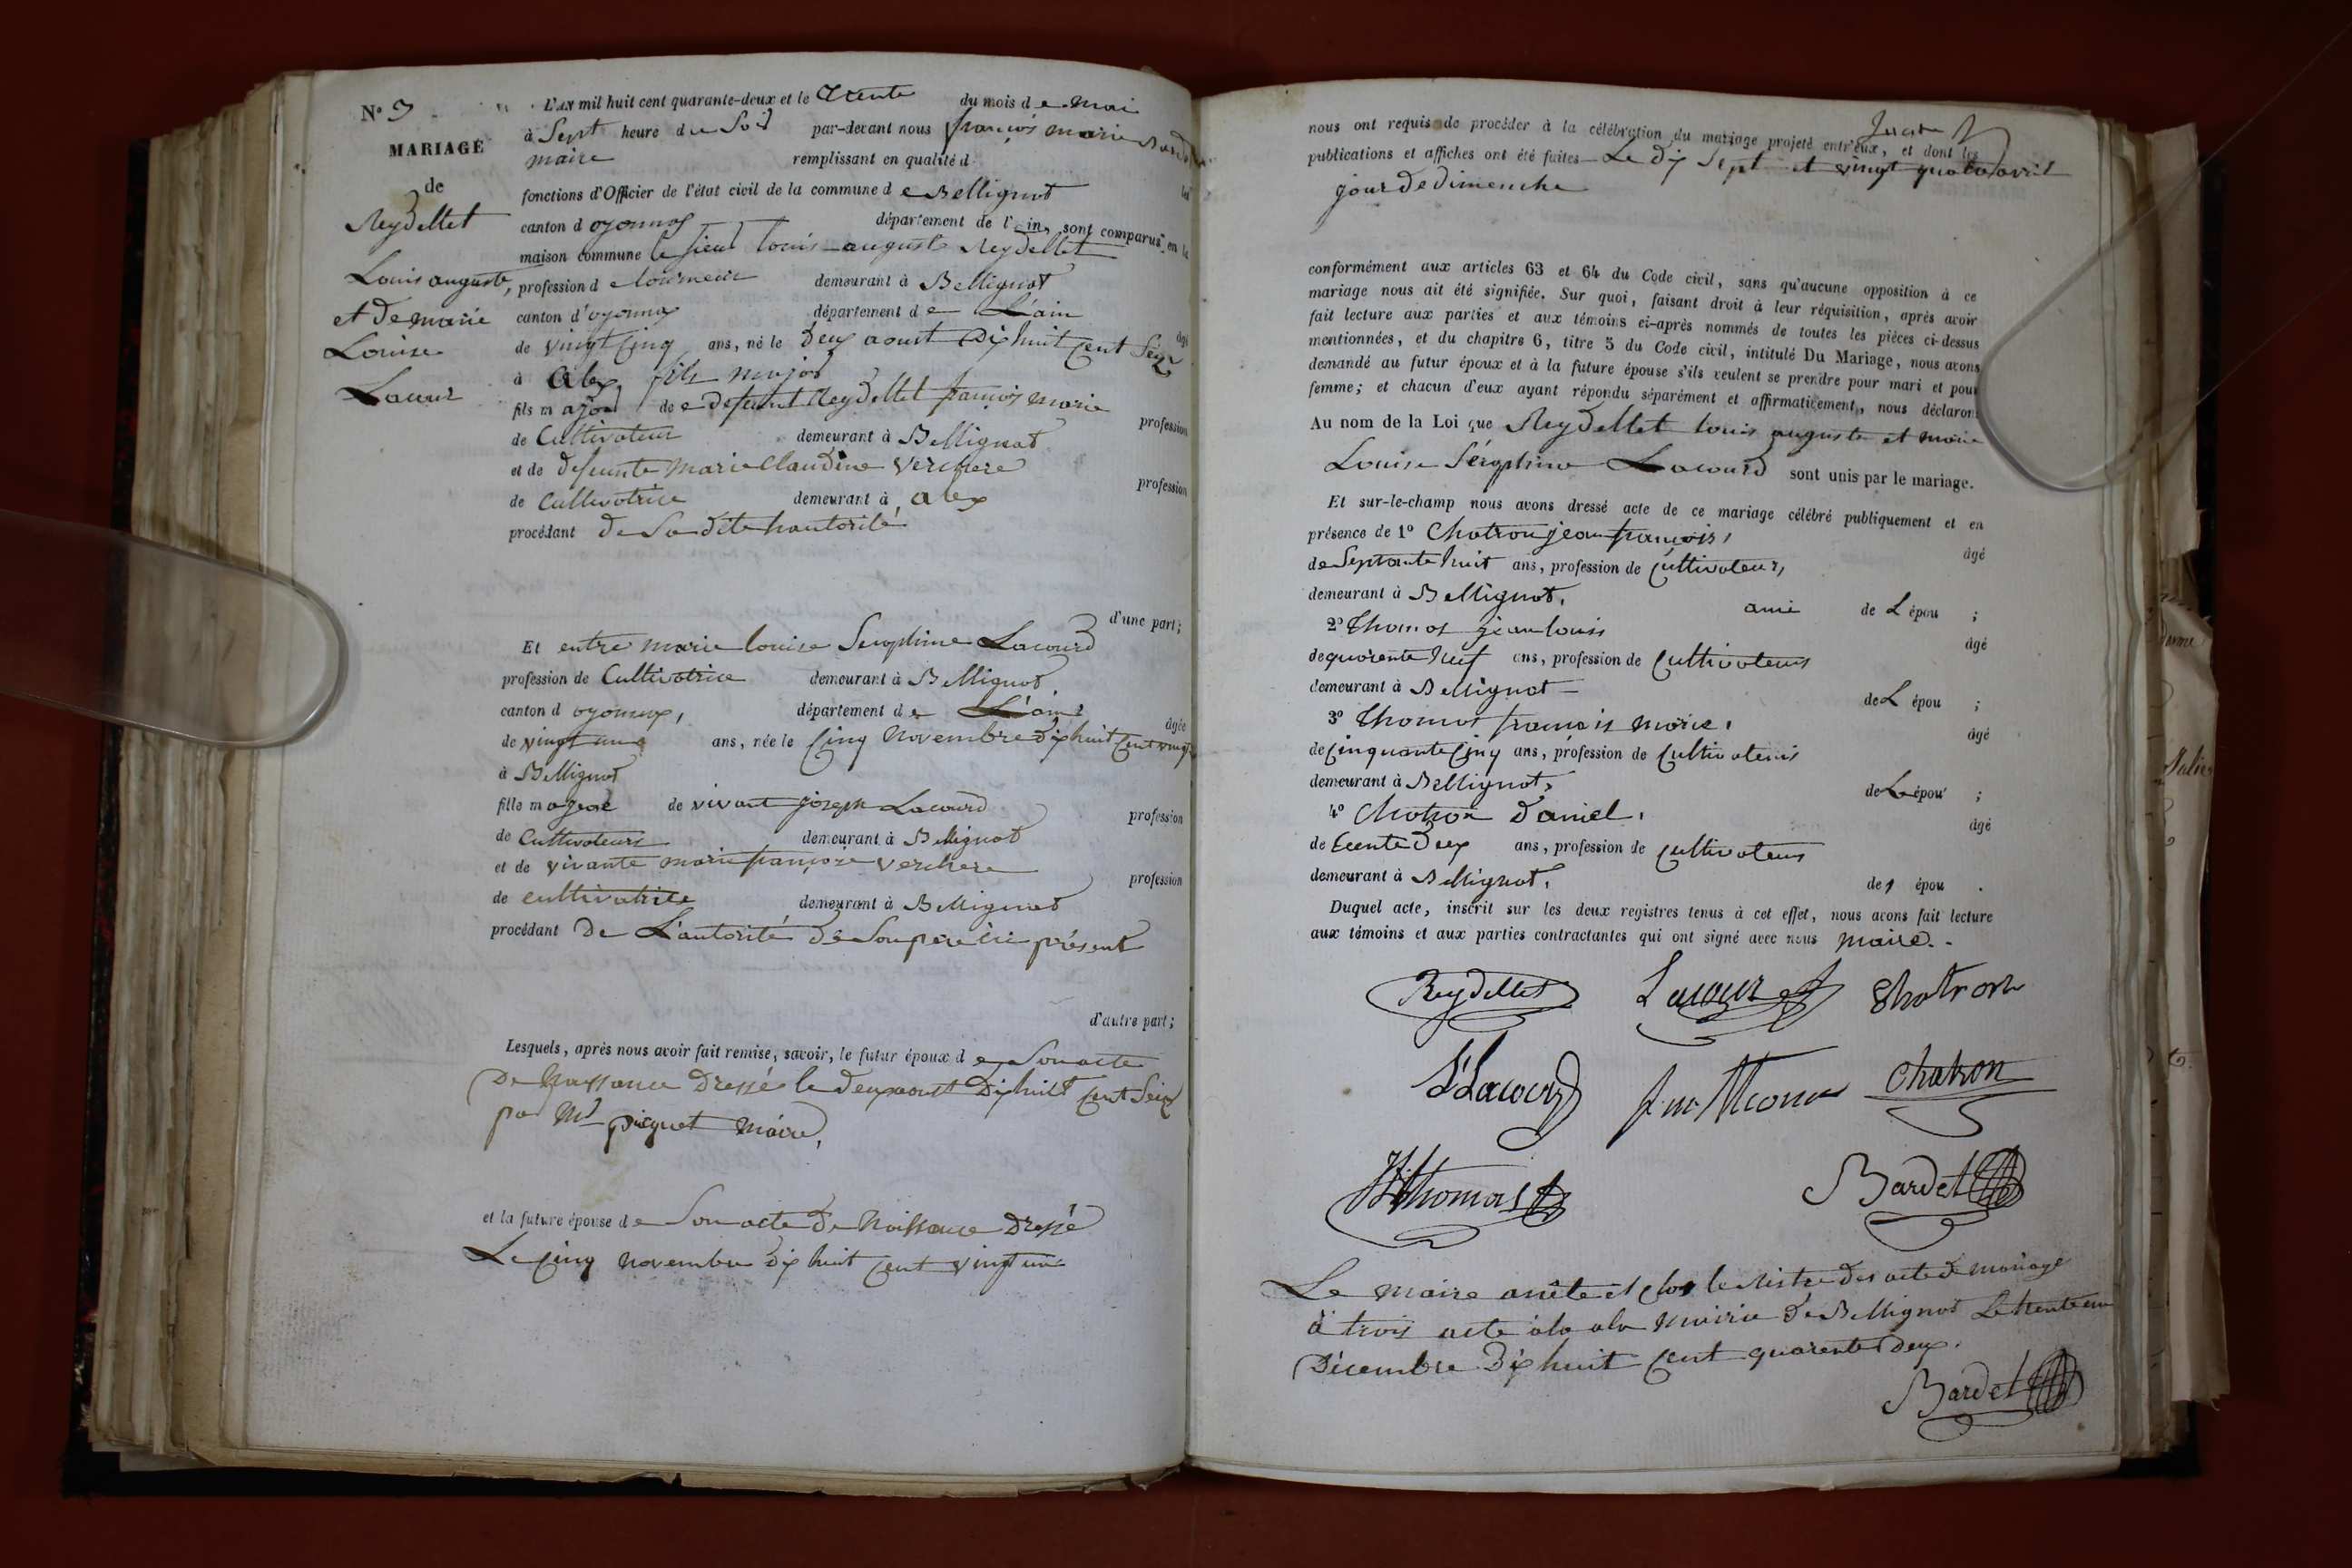 N° 3
MARIAGE
de
Reydellet
Louis auguste,
et de marie
Louise
Lacour
L'AN mil huit cent quarante-deux et le trente du mois de mai
à Sept heure du Soir par-devant nous françois marie Bardet
maire remplissant en qualité d les
fonctions d'Officier de l'état civil de la commune de Bellignat
canton d oyonnax département de l'Ain, sont comparus en la
maison commune le sieur louis auguste Reydellet
profession d e tourneur demeurant à Bellignat
canton d'oyonnax département de L'ain âgé
de vingt cinq ans, né le deux aoust dix huit cent Seize
à alex, fils major
fils majour de e defunt Reydellet francois marie profession
de Cultivateur demeurant à Bellignat
et de defunte Marie Claudine Verchere profession
de Cultivatrice demeurant à alex
procédant de Sa dite hautorité
d'une part;
Et entre marie louise Seraphine Lacourd
profession de Cultivatrice demeurant à Bellignat
canton d oyonnax, département de L'ain âgée
de vingt une ans, née le cinq novembre dix huit cent vingt
à Bellignat
fille majeure de vivant joseph Lacourd profession
de Cultivateurs demeurant à Bellignat
et de vivante marie françoise Verchere profession
de cultivatrice demeurant à Bellignat
procédant de L'autorité de Son père ici présent
d'autre part;
Lesquels, après nous avoir fait remise, savoir, le futur époux d e Son acte
De Naissance Dressé le deux aoust Dix huit cent Seize
par Mr piquet Maire,
et la future épouse de Son acte de Naissance Dressé
Le cinq novembre dix huit cent vingt un
nous ont requis de procéder à la célébration du mariage projeté entr'eux, et dont les
publications et affiches ont été faites Le dix Sept et vingt quatre avril
jour de dimenche
conformément aux articles 63 et 64 du Code civil, sans qu'aucune opposition à ce
mariage nous ait été signifiée. Sur quoi, faisant droit à leur réquisition, après avoir
fait lecture aux parties et aux témoins ci-après nommés de toutes les pièces ci-dessus
mentionnées, et du chapitre 6, titre 5 du Code civil, intitulé Du Mariage, nous avons
demandé au futur époux et à la future épouse s'ils veulent se prendre pour mari et pour
femme; et chacun d'eux ayant répondu séparément et affirmativement, nous déclarons
Au nom de la Loi que Reydellet louis auguste et marie
Louise Séraphine Lacourd sont unis par le mariage.
Et sur-le-champ nous avons dressé acte de ce mariage célébré publiquement et en
présence de 1° Chatron jean françois, âgé
de Septante huit ans, profession de Cultivateur,
demeurant à Bellignat, ami de L épou ;
2° Thomas jean louis âgé
de quarente neuf ans, profession de Cultivateurs
demeurant à Bellignat de L épou ;
3° Thomas francois Marie, âgé
de Cinquante Cinq ans, profession de Cultivateurs
demeurant à Bellignat, de L épou ;
4° Chatron Daniel, âgé
de trente deux ans, profession de Cultivateurs
demeurant à Bellignat, de l épou .
Duquel acte, inscrit sur les deux registres tenus à cet effet, nous avons fait lecture
aux témoins et aux parties contractantes qui ont signé avec nous maire.
Reydellet Lacour Chatron
Lacourd f. m. Thomas Chatron
Thomas Bardet
Le Maire arrête et clos le Ristre des acte de mariage
à trois acte à la Mairie de Bellignat Le trente un
Décembre Dix huit cent quarente deux.
Bardet